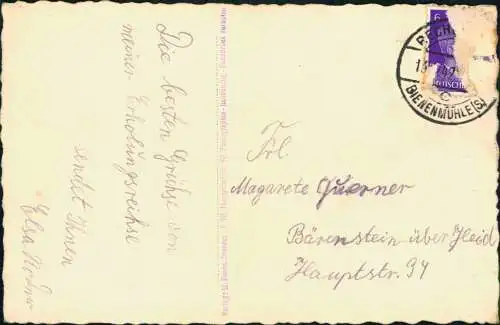 Die besten Grüße von
meiner Erholungsreihse
sendet Ihnen
Elsa
6
BIENENMÜHLE (S)
c
Frl.
Magarete Querner
Bärenstein über Heid
Hauptstr. 34